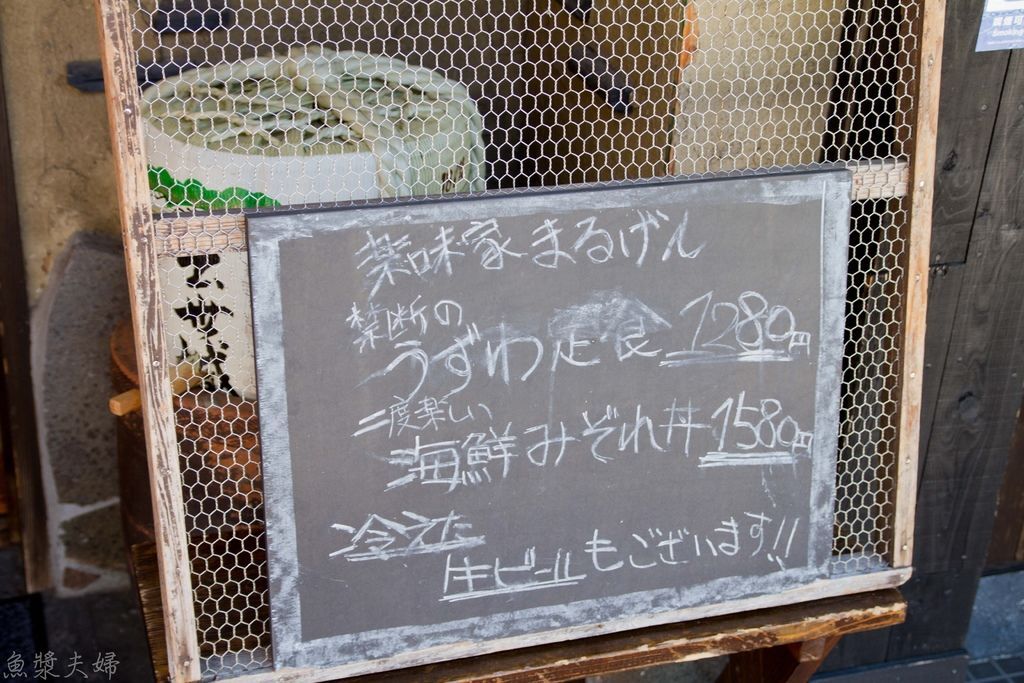 薬味家まるげん
禁断の
うずわ定食 1280円
二度楽しい
海鮮みぞれ丼 1580円
冷えた
生ビールもございます!!
Smoking
魚漿夫婦